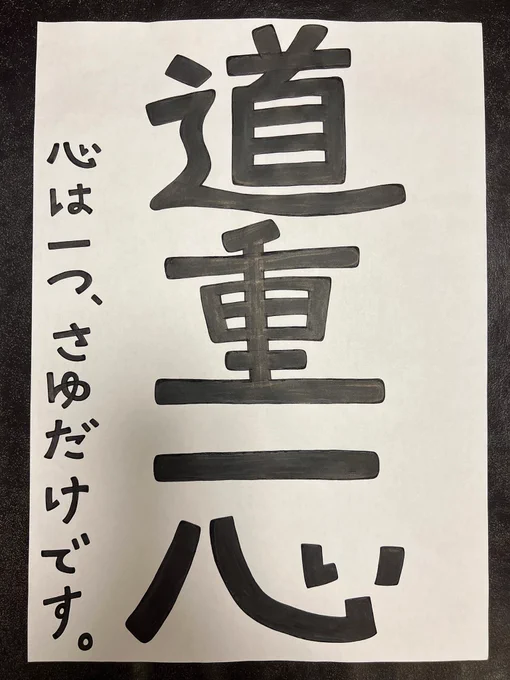 道重一心
心は一つ、さゆだけです。